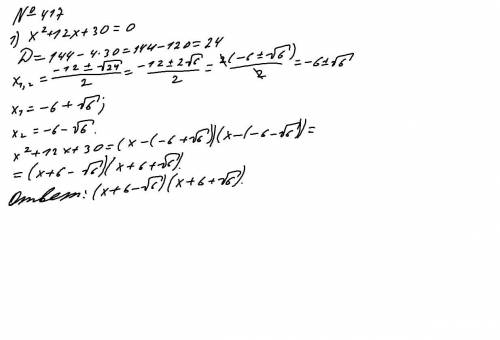 №417
1) x²+12x+30=0
D=144-4·30=144-120=24
x₁,₂=(-12±√24)/2=(-12±2√6)/2=2(-6±√6)/2=-6±√6
x₁=-6+√6;
x₂=-6-√6.
x²+12x+30=(x-(-6+√6))(x-(-6-√6))=
=(x+6-√6)(x+6+√6).
Ответ: (x+6-√6)(x+6+√6).